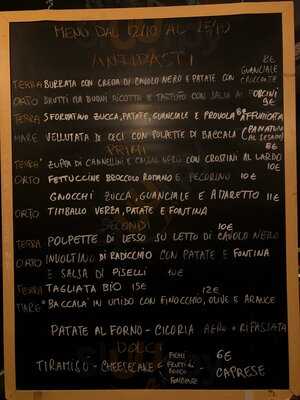 MENÙ DAL 12/10 AL 25/10
ANTIPASTI
8€
GUANCIALE
CROCCANTE
TERRA BURRATA CON CREMA DI CAVOLO NERO E PATATE CON
ORTO BRUTTI MA BUONI RICOTTA E TARTUFO CON SALSA AI PORCINI
9€
TERRA SFORMATINO ZUCCA, PATATE, GUANCIALE E PROVOLA AFFUMICATA
MARE VELLUTATA DI CECI CON POLPETTE DI BACCALÀ (PANATURA
AL SESAMO)
PRIMI
8€
TERRA ZUPPA DI CANNELLINI E CAVOLO NERO CON CROSTINI AL LARDO
10€
ORTO FETTUCCINE BROCCOLO ROMANO E PECORINO 10€
GNOCCHI ZUCCA, GUANCIALE E AMARETTO 11€
ORTO TIMBALLO VERZA, PATATE E FONTINA
SECONDI
10€
TERRA POLPETTE DI LESSO SU LETTO DI CAVOLO NERO
ORTO INVOLTINO DI RADICCHIO CON PATATE E FONTINA
E SALSA DI PISELLI 10€
TERRA TAGLIATA BIO 15€
12€
MARE BACCALÀ IN UMIDO CON FINOCCHIO, OLIVE E ARANCE
PATATE AL FORNO - CICORIA AGRO O RIPASSATA
DOLCI
6€
TIRAMISÙ - CHEESECAKE FICHI
FRUTTI DI
BOSCO
FONDENTE
- CAPRESE